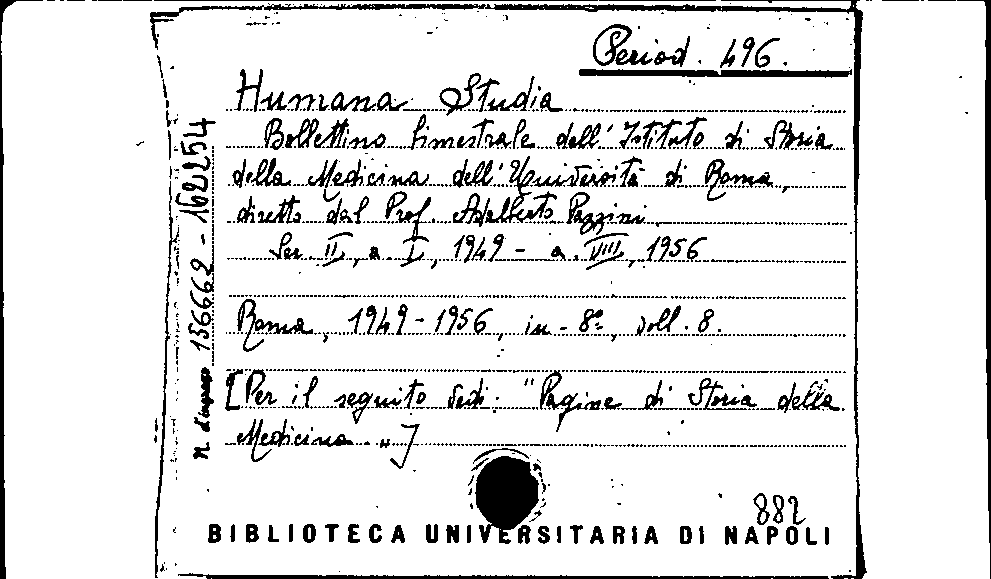 Period. 496.
Humana Studia
Bollettino bimestrale dell'Istituto di Storia
della Medicina dell'Università di Roma,
diretto dal Prof. Adalberto Pazzini.
Ser. II, a. I, 1949 - a. VIII, 1956
Roma, 1949-1956, in-8º, voll. 8.
[Per il seguito vedi: "Pagine di Storia della
Medicina"]
N. d'ingresso 156662 - 162254
882
BIBLIOTECA UNIVERSITARIA DI NAPOLI